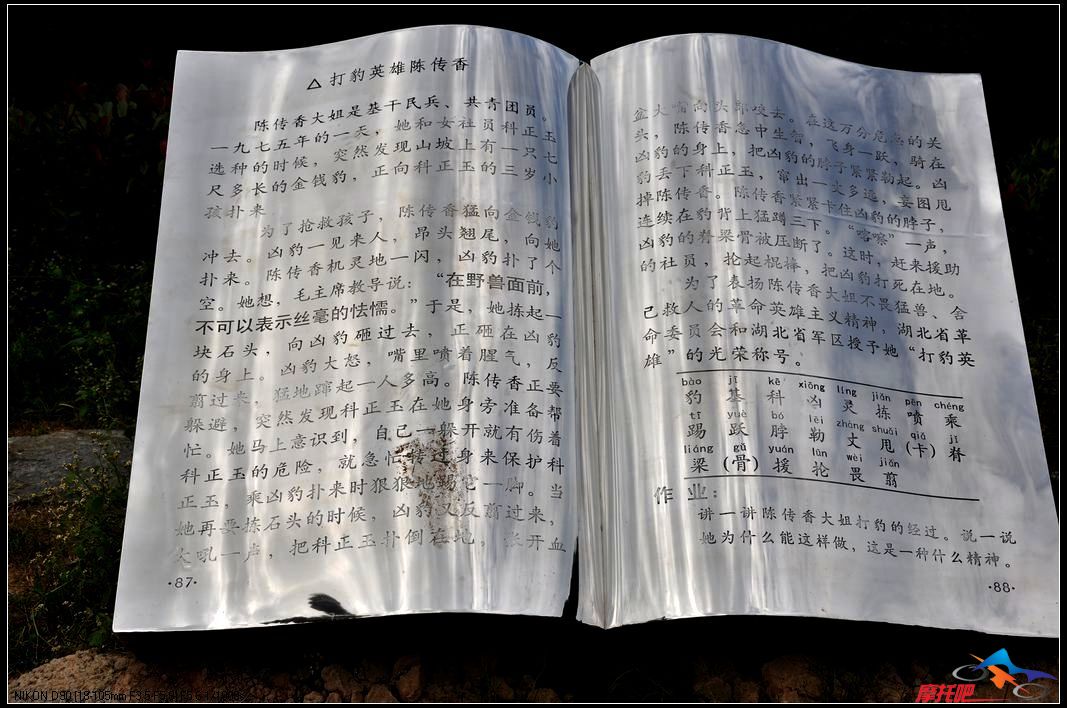 △打豹英雄陈传香
陈传香大姐是基干民兵、共青团员。
一九七五年的一天，她和女社员科正玉
选种的时候，突然发现山坡上有一只七
尺多长的金钱豹，正向科正玉的三岁小
孩扑来
为了抢救孩子，陈传香猛向金钱豹
冲去。凶豹一见来人，昂头翘尾，向她
扑来。陈传香机灵地一闪，凶豹扑了个
空。她想，毛主席教导说：“在野兽面前，
不可以表示丝毫的怯懦。”于是，她拣起一
块石头，向凶豹砸过去，正砸在凶豹
的身上。凶豹大怒，嘴里喷着腥气，反
翦过来，猛地蹿起一人多高。陈传香正要
躲避，突然发现科正玉在她身旁准备帮
忙。她马上意识到，自己一躲开就有伤着
科正玉的危险，就急忙转过身来保护科
正玉，乘凶豹扑来时狠狠地踢它一脚。当
她再要拣石头的时候，凶豹又反翦过来，
大吼一声，把科正玉扑倒在地，张开血
·87·
盆大嘴向头部咬去。在这万分危急的关
头，陈传香急中生智，飞身一跃，骑在
凶豹的身上，把凶豹的脖子紧紧勒起。凶
豹丢下科正玉，窜出一丈多远，妄图甩
掉陈传香。陈传香紧紧卡住凶豹的脖子，
连续在豹背上猛蹲三下。“喀嚓”一声，
凶豹的脊梁骨被压断了。这时，赶来援助
的社员，抡起棍棒，把凶豹打死在地。
为了表扬陈传香大姐不畏猛兽、舍
己救人的革命英雄主义精神，湖北省革
命委员会和湖北省军区授予她“打豹英
雄”的光荣称号。
bào jī kē xiōng líng jiǎn pēn chéng
豹 基 科 凶 灵 拣 喷 乘
tī yuè bó lēi zhàng shuǎi qiǎ jǐ
踢 跃 脖 勒 丈 甩 (卡) 脊
liáng gǔ yuán lūn wèi jiǎn
梁 (骨) 援 抡 畏 翦
作业：
讲一讲陈传香大姐打豹的经过。说一说
她为什么能这样做，这是一种什么精神。
·88·
摩托吧